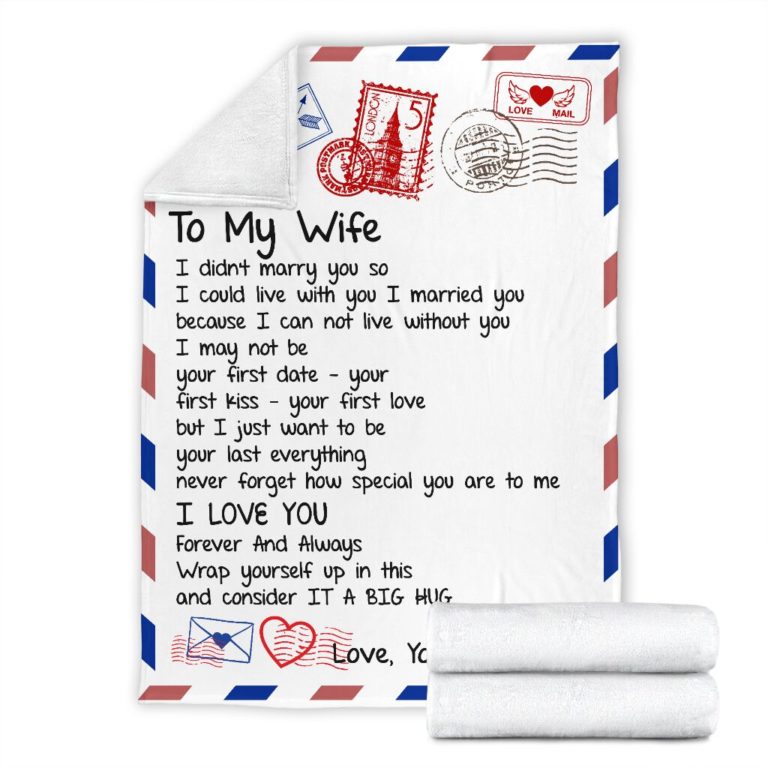 LONDON
5
POSTMARK
LOVE MAIL
To My Wife
I didn't marry you so
I could live with you I married you
because I can not live without you
I may not be
your first date - your
first kiss - your first love
but I just want to be
your last everything
never forget how special you are to me
I LOVE YOU
Forever And Always
Wrap yourself up in this
and consider IT A BIG HUG
Love,